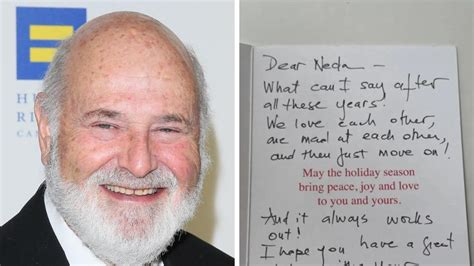 H
RI
CA
Dear Neda —
What can I say after
all these years.
We love each other,
are mad at each other,
and then just move on!
May the holiday season
bring peace, joy and love
to you and yours.
And it always works
out!
I hope you have a great